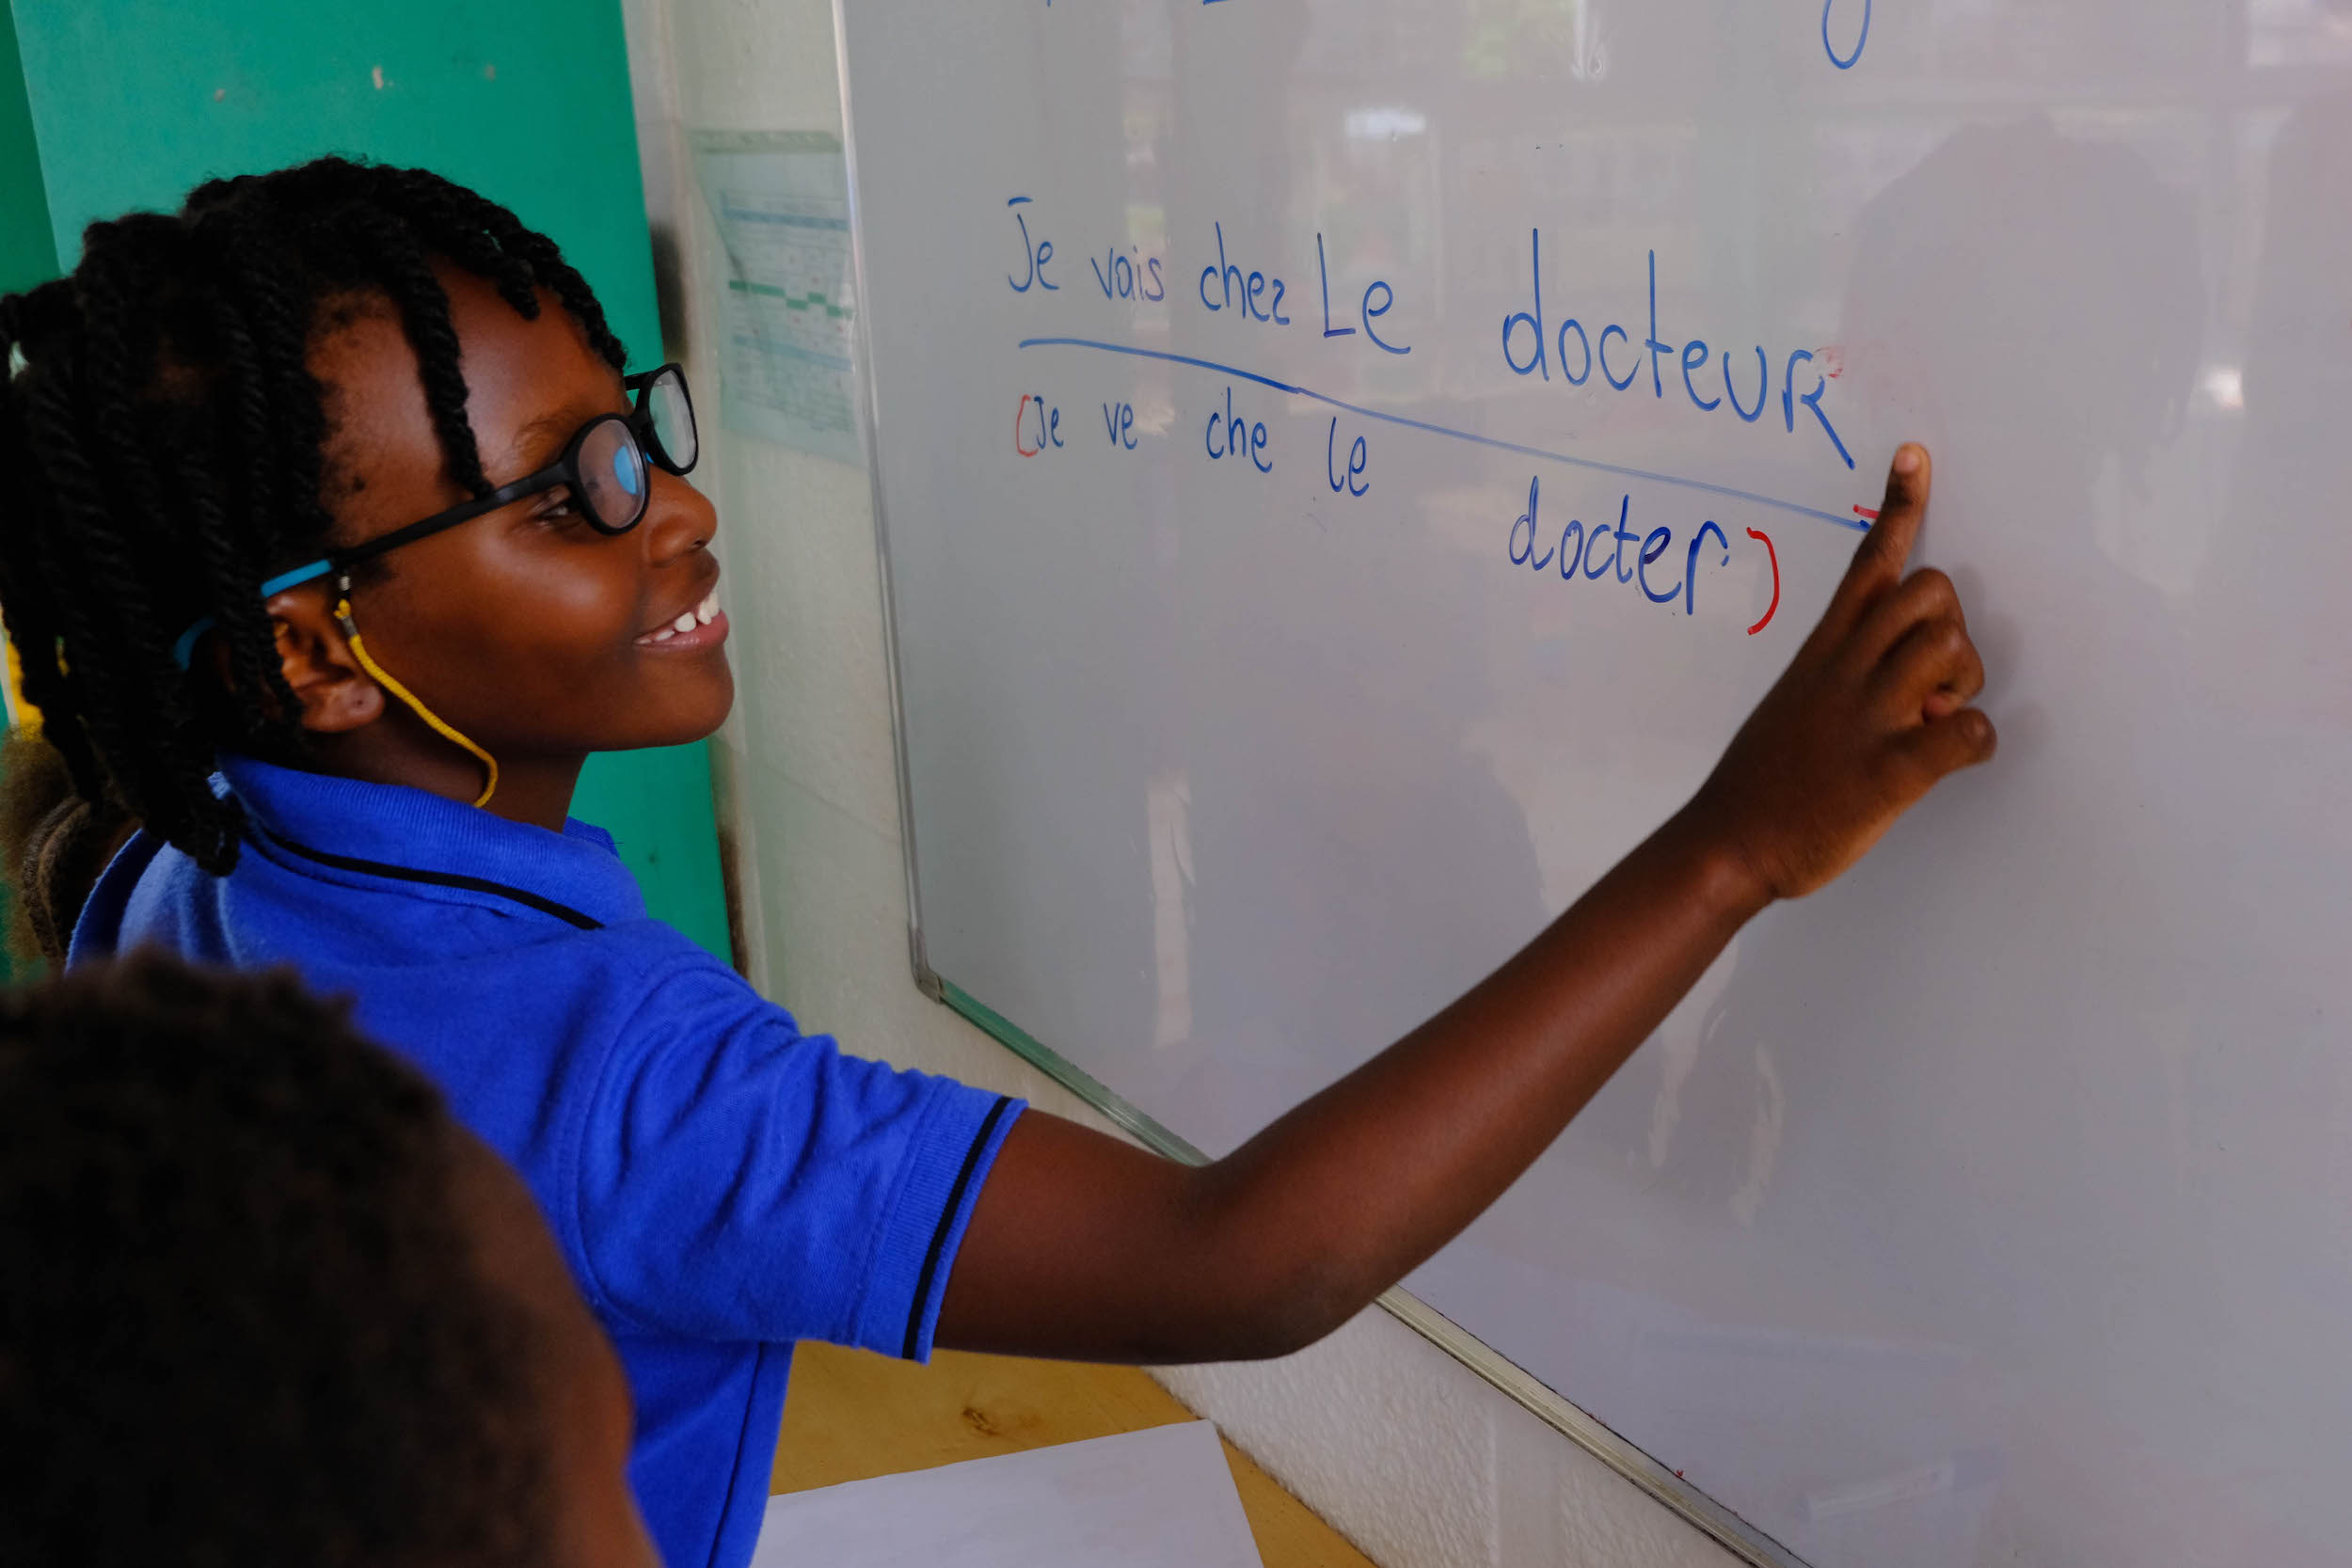 Je vais chez Le docteuR
(Je ve che le docter)